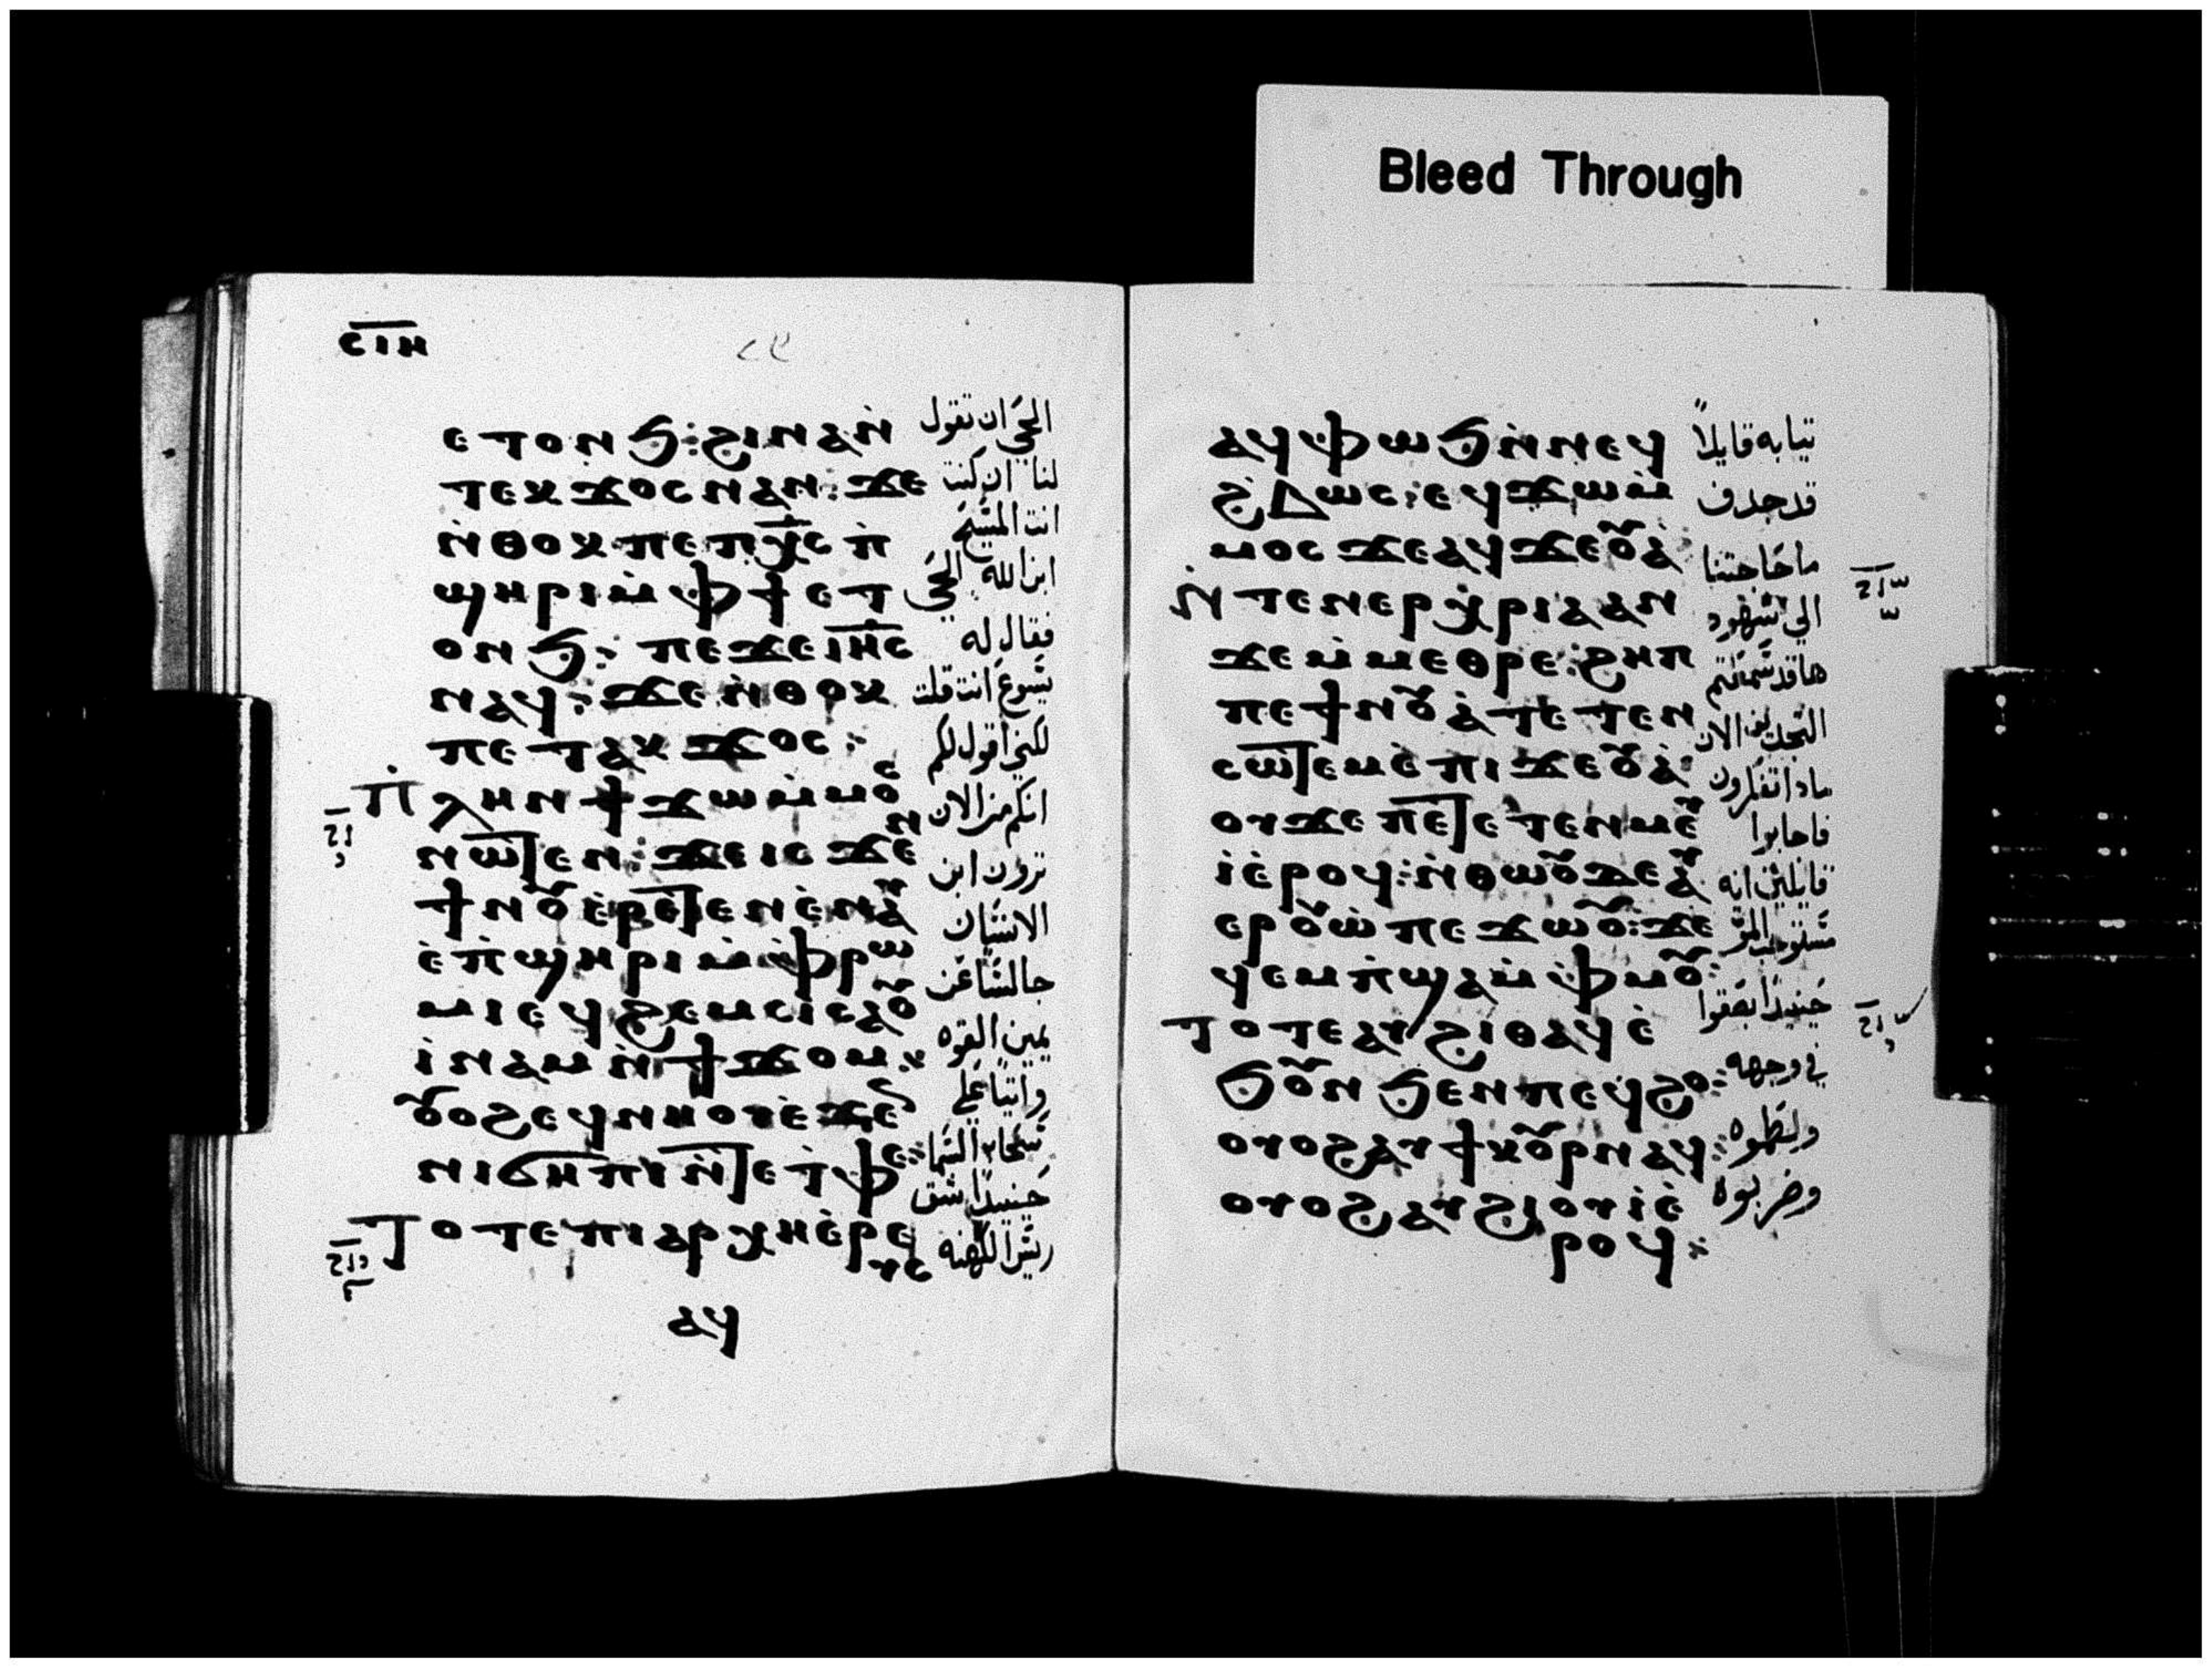 Bleed Through
ⲥⲓⲏ
ⲉⲧⲟⲛϧ: ϩⲓⲛⲁⲛ̀
ⲧⲉⲕϫⲟⲥ ⲛⲁⲛ: ϫⲉ
ⲛ̀ⲑⲟⲕ ⲡⲉ ⲡⲭ̅ⲥ ⲡ̀
ϣⲏⲣⲓ ⲙ̀ⲫϯ ⲉⲧ
ⲟⲛϧ: ⲡⲉϫⲉ ⲓⲏ̅ⲥ
ⲛⲁϥ: ϫⲉ ⲛ̀ⲑⲟⲕ
ⲡⲉⲧⲁⲕϫⲟⲥ:
ⲡ̀ⲗⲏⲛ ϯϫⲱ ⲙ̀ⲙⲟⲥ
ⲛⲱⲧⲉⲛ: ϫⲉ ⲓⲥϫⲉⲛ
ϯⲛⲟⲩ ⲉ̀ⲣⲉⲧⲉⲛⲉ̀ⲛⲁⲩ
ⲉ̀ⲡ̀ϣⲏⲣⲓ ⲙ̀ⲫⲣⲱ
ⲙⲓ ⲉϥϩⲉⲙⲥⲓ ⲥⲁⲟⲩ
ⲓ̀ⲛⲁⲙ ⲛ̀ϯϫⲟⲙ:
ⲟⲩⲟϩ ⲉϥⲛⲏⲟⲩ ⲉ̀ϫⲉⲛ
ⲛⲓϭⲏⲡⲓ ⲛ̀ⲧⲉ ⲧ̀ⲫⲉ:
ⲧⲟⲧⲉ ⲡⲓⲁⲣⲭⲏⲉ̀ⲣⲉ
ⲩⲥ
ⲁϥ
الحي ان تقول
لنا ان كنت
انت المسيح
ابن الله الحي
فقال له
يسوع انت قلت
لكني اقول لكم
انكم من الان
ترون ابن
الانسان
جالسا عن
يمين القوه
واتيا علي
سحاب السما
حينيذ شق
ريس الكهنه
ⲁϥⲫⲱϧ ⲛ̀ⲛⲉϥ
ϩⲃⲱⲥ: ⲉϥϫⲱ ⲙ̀
ⲙⲟⲥ ϫⲉ ⲁϥϫⲉⲟⲩⲁ̀
ⲛ̀ⲧⲉⲛⲉⲣⲭⲣⲓⲁ ⲁⲛ
ϫⲉ ⲙ̀ⲙⲉⲑⲣⲉ: ϩⲏⲡ
ⲡⲉ ϯⲛⲟⲩ ⲁ̀ⲧⲉⲧⲉⲛ
ⲥⲱⲧⲉⲙ ⲉ̀ⲡⲓϫⲉⲟⲩⲁ̀
ⲟⲩ ϫⲉ ⲡⲉⲧⲉⲧⲉⲛⲙⲉⲩ
ⲓ̀ ⲉ̀ⲣⲟϥ: ⲛ̀ⲑⲱⲟⲩ ϫⲉ ⲁⲩ
ⲉⲣⲟⲩⲱ̀ ⲡⲉϫⲱⲟⲩ: ϫⲉ
ϥⲉⲙⲡ̀ϣⲁ ⲙ̀ⲫⲙⲟⲩ:
ⲧⲟⲧⲉ ⲁⲩϩⲓⲑⲁϥ ⲉ̀
ϧⲟⲩⲛ ϧⲉⲛ ⲡⲉϥϩⲟ:
ⲟⲩⲟϩ ⲁⲩϯⲕⲟⲩⲣ ⲛⲁϥ:
ⲟⲩⲟϩ ⲁⲩϩⲓⲟⲩⲓ̀ ⲉ̀
ⲣⲟϥ:
تيابه قايلا
قد جدف
ما حاجتنا
الي شهود
ها قد سمعتم
التجديف الان
مادا تفكرون
فاجابوا
قايلين انه
مستوجب الموت
حينيذ بصقوا
في وجهه
ولطموه
وضربوه